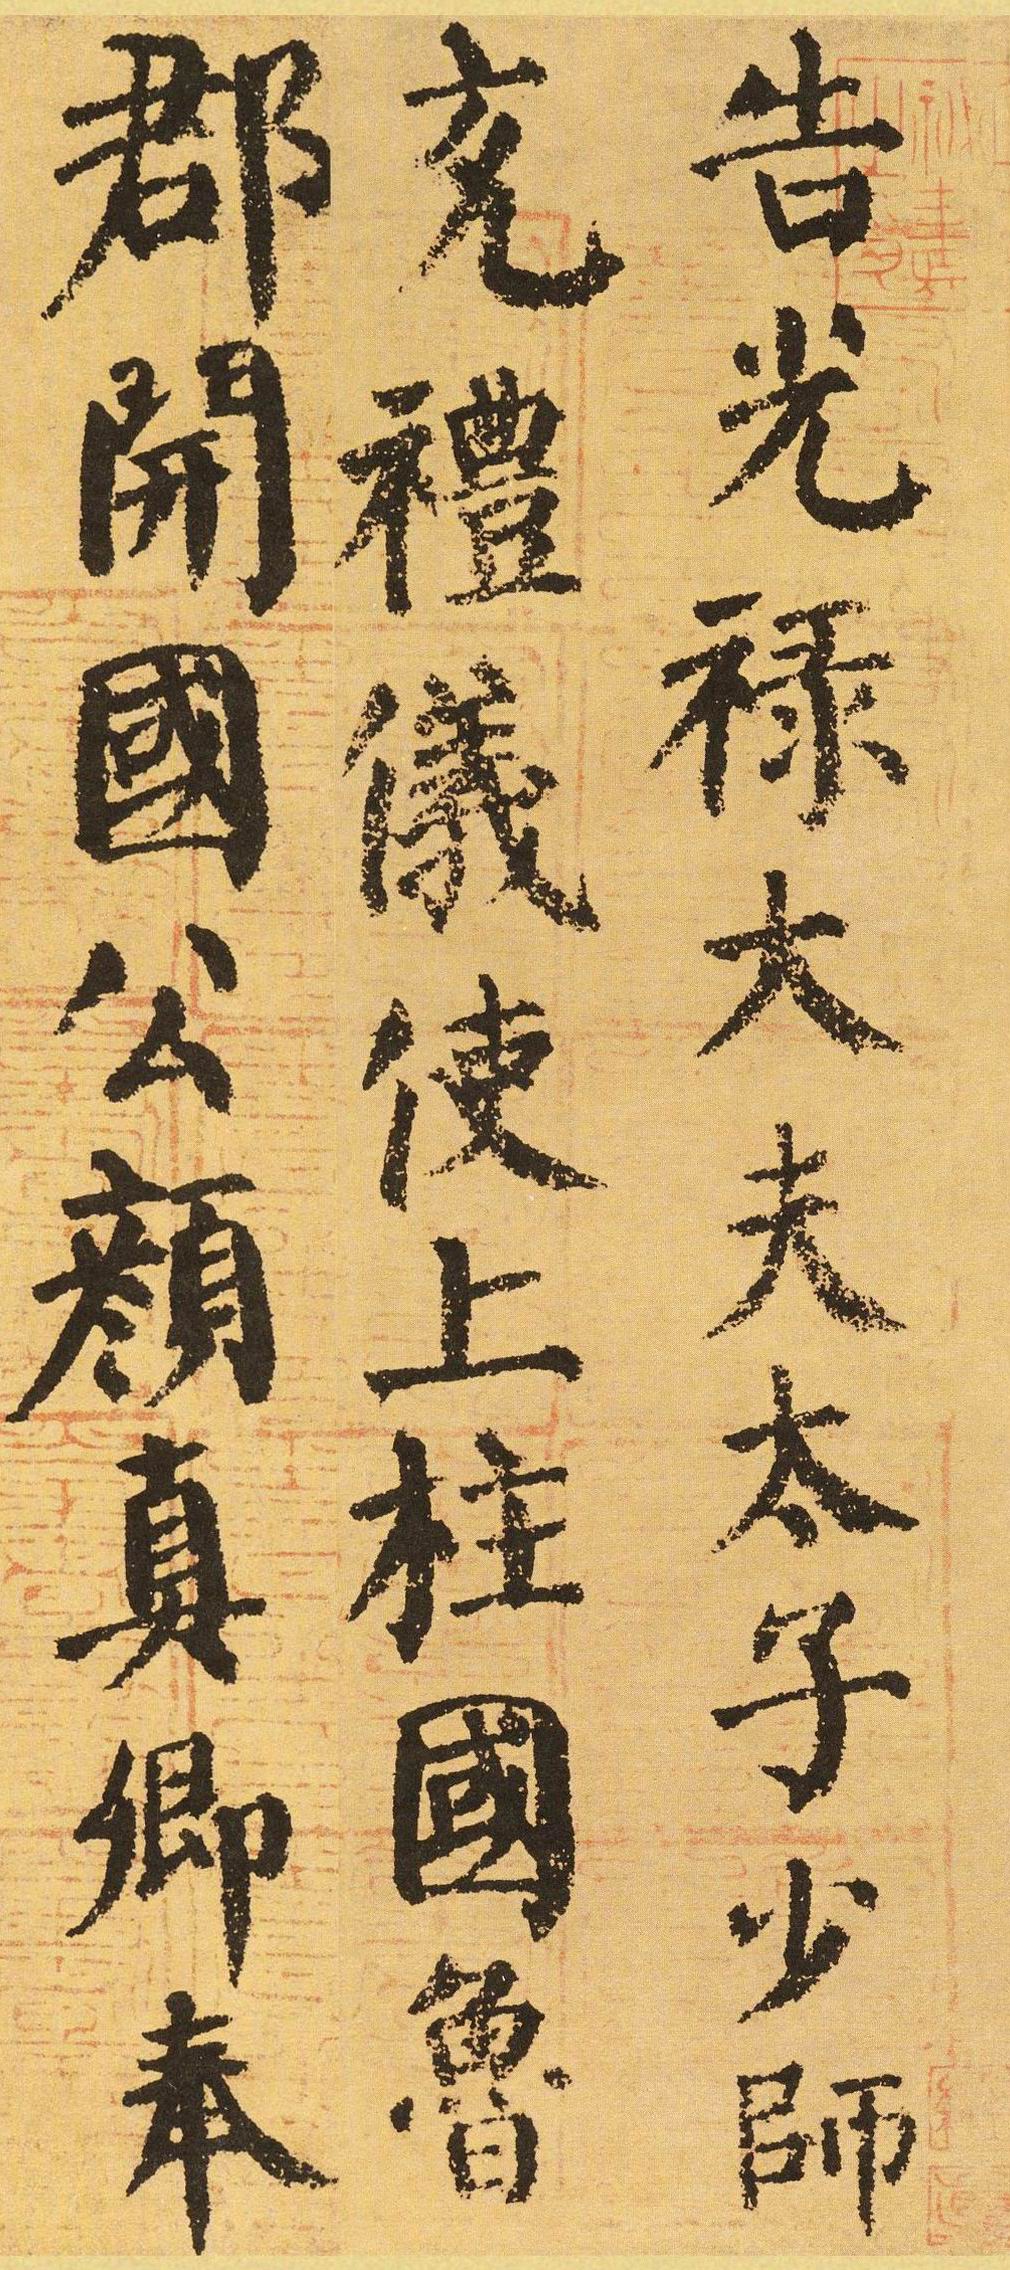 告光祿大夫太子少師
充禮儀使上柱國魯
郡開國公顏真卿奉